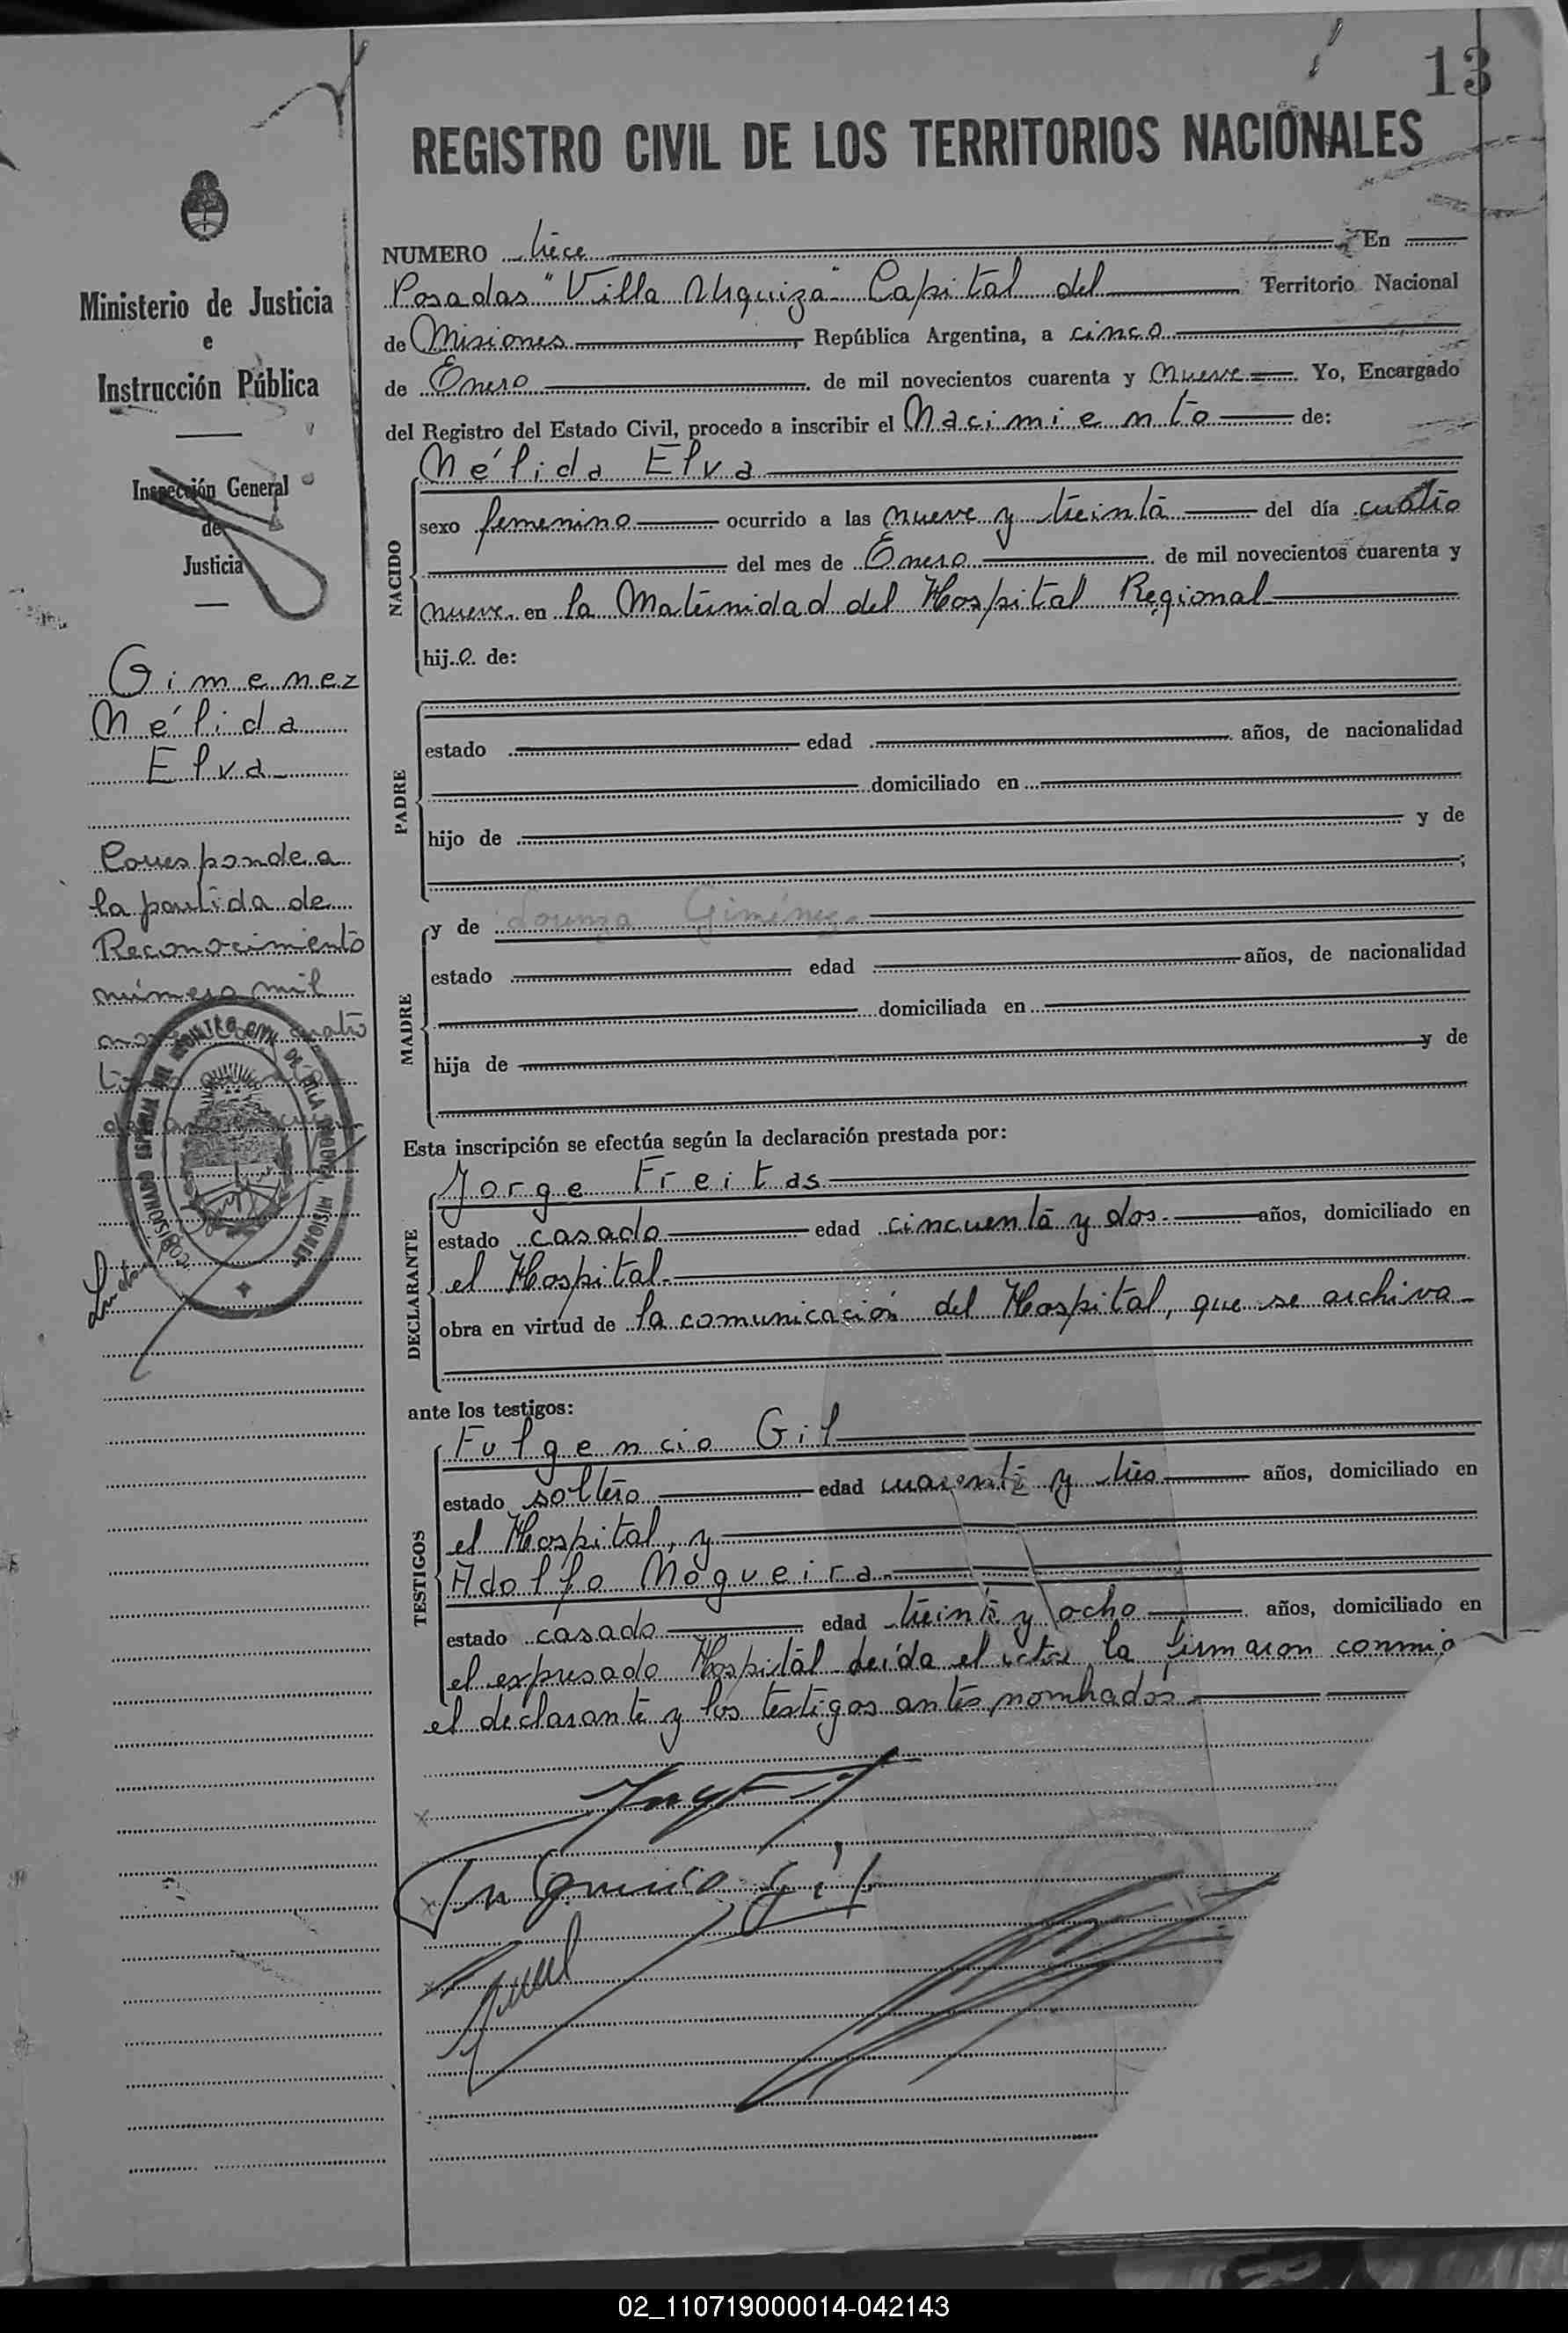 13
REGISTRO CIVIL DE LOS TERRITORIOS NACIONALES
Ministerio de Justicia
e
Instrucción Pública
Inspección General
de
Justicia
Gimenez
Nélida
Elva
Corresponde a
la partida de
Reconocimiento
número mil
NUMERO trece En
Posadas "Villa Urquiza" Capital del Territorio Nacional
de Misiones, República Argentina, a cinco
de Enero de mil novecientos cuarenta y nueve Yo, Encargado
del Registro del Estado Civil, procedo a inscribir el Nacimiento de:
NACIDO
Nélida Elva
sexo femenino ocurrido a las nueve y treinta del día cuatro
del mes de Enero de mil novecientos cuarenta y
nueve en la Maternidad del Hospital Regional
hij de:
PADRE
estado edad años, de nacionalidad
domiciliado en
hijo de y de
;
MADRE
y de Lorenza Giménez
estado edad años, de nacionalidad
domiciliada en
hija de y de
Esta inscripción se efectúa según la declaración prestada por:
DECLARANTE
Jorge Freitas
estado casado edad cincuenta y dos años, domiciliado en
el Hospital
obra en virtud de la comunicación del Hospital, que se archiva
ante los testigos:
TESTIGOS
Fulgencio Gil
estado soltero edad cuarenta y tres años, domiciliado en
el Hospital, y
Adolfo Nogueira
estado casado edad treinta y ocho años, domiciliado en
el expresado Hospital Leída el acta, la firmaron conmigo
el declarante y los testigos antes nombrados
02_110719000014-042143